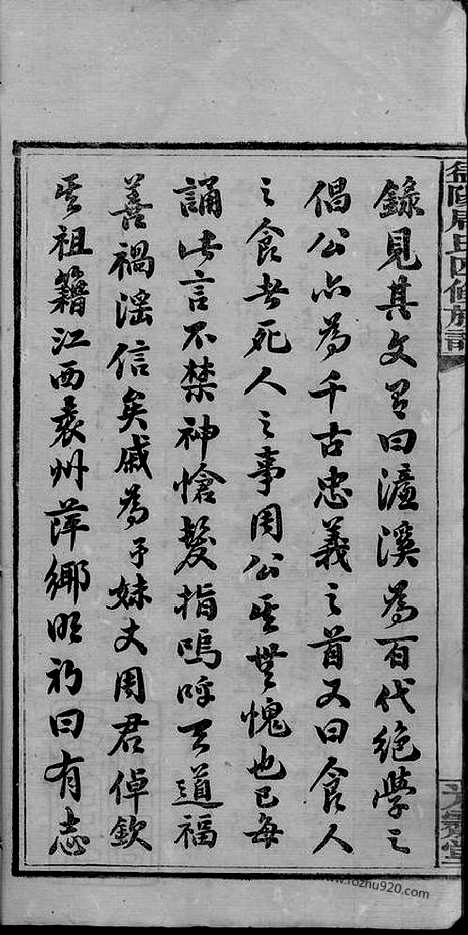 錄見其文有曰濂溪為百代絕學之
倡公亦為千古忠義之首又曰食人
之食者死人之事周公其無愧也已每
誦此言不禁神愴髮指嗚呼天道福
善禍淫信矣戚為予妹丈周君倬欽
其祖籍江西袁州萍鄉明初曰有志
周氏四修族譜
光霽堂
www.fozhu920.com